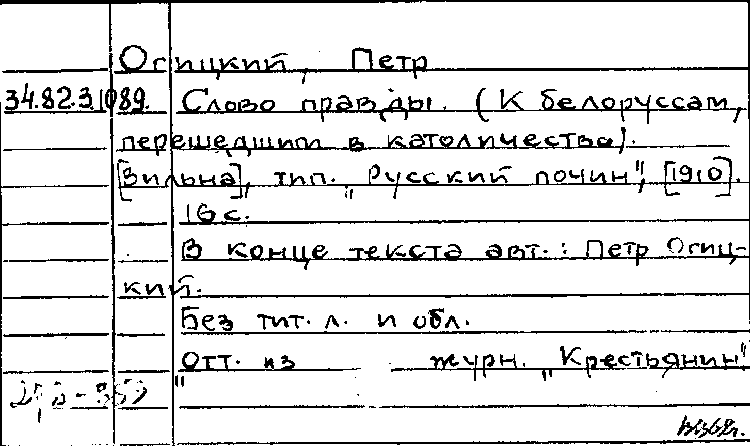 Осицкий, Петр
34.82.3.1089. Слово правды. (К белоруссам,
перешедшим в католичество).
[Вильна], тип. „Русский почин", [1910].
16 с.
В конце текста авт.: Петр Осиц-
кий.
Без тит. л. и обл.
Отт. из журн. „Крестьянин"